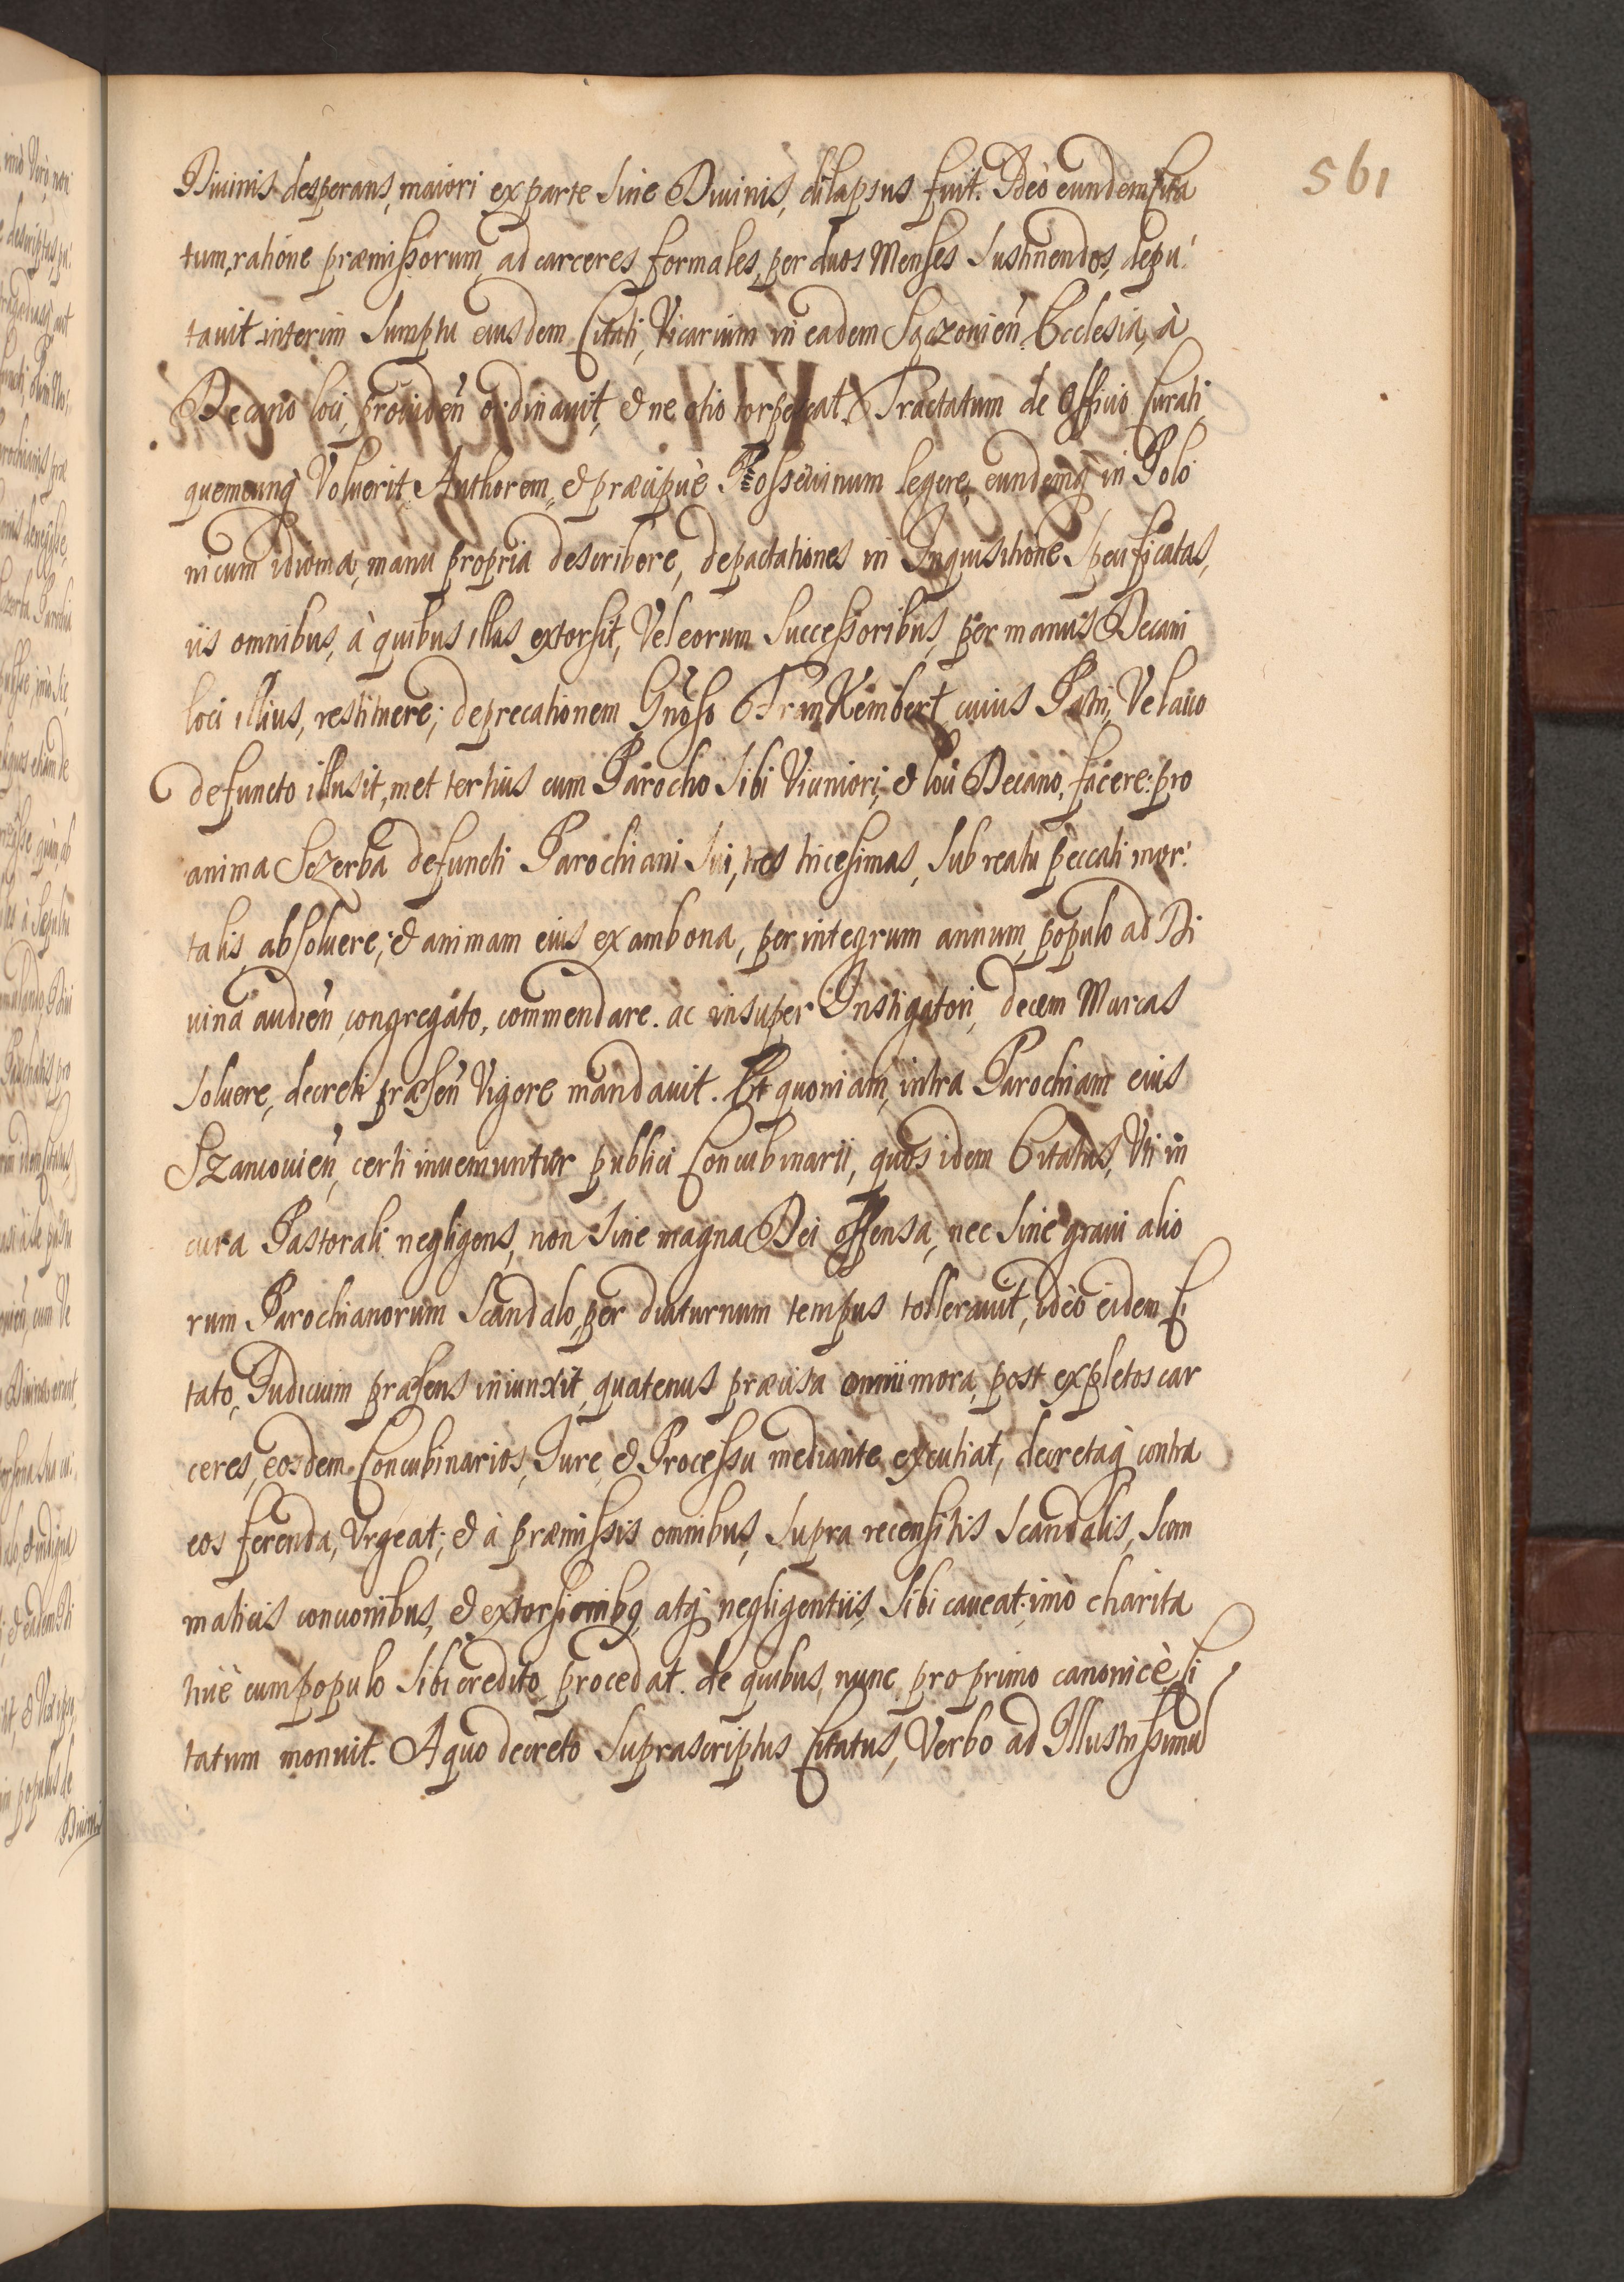 561
Diuinis desperans, maiori ex parte sine Diuinis, dilapsus fuit. Ideò eundem Cita
tum, ratione præmissorum, ad carceres formales, per duos Menses sustinendos, depu
tauit interim sumptu eiusdem Citati, Vicarium in eadem Ecclesia, à
Decano loci, prouiden̄ ordinauit, & ne otio torpescat. Tractatum de Officio Curati,
quemcunq́ Voluerit Authorem, & præcipuè Posseuinum legere, eundemq́ in Polo
nicum idioma, manu propria describere, depactationes in Inquisitione specificatas,
iis omnibus, à quibus illas extorsit, Vel eorum Successoribus, per manus Decani
loci illius, restituere; deprecationem Gnoso Frankembert, cuius Patri, Vel auo
defuncto illusit, met tertius cum Parocho sibi Viciniori, & loci Decano, facere: pro
anima Sczerba defuncti Parochiani sui, tres tricesimas, sub reatu peccati mor:
talis absoluere; & animam eius ex ambona, per integrum annum, populo ad Di
uina audien̄ congregato, commendare. ac insuper Instigatori, decem Marcas
soluere, decreti præsen̄ Vigore mandauit. Et quoniam, intra Parochiam eius
Szancouien̄, certi inueniuntur publici Concubinarii, quos idem Citatus, Vti in
cura Pastorali negligens, non sine magna Dei offensa, nec sine graui alio
rum Parochianorum scandalo, per diuturnum tempus tollerauit, ideò eidem Ci
tato, Iudicium præsens iniunxit, quatenus præcisa omni mora, post expletos car
ceres, eosdem Concubinarios, Iure, & Processu mediante, excutiat, decretaq́ contra
eos ferenda, Vrgeat; & à præmissis omnibus, supra recensitis scandalis, scom
maticis concionibus, & extorsionibq, atq́ negligentiis, sibi caueat, imò charita
tiuè cum populo sibi credito procedat. de quibus, nunc pro primo canonicè Ci
tatum monuit. A quo decreto suprascriptus Citatus, Verbo ad Illustrissimũ